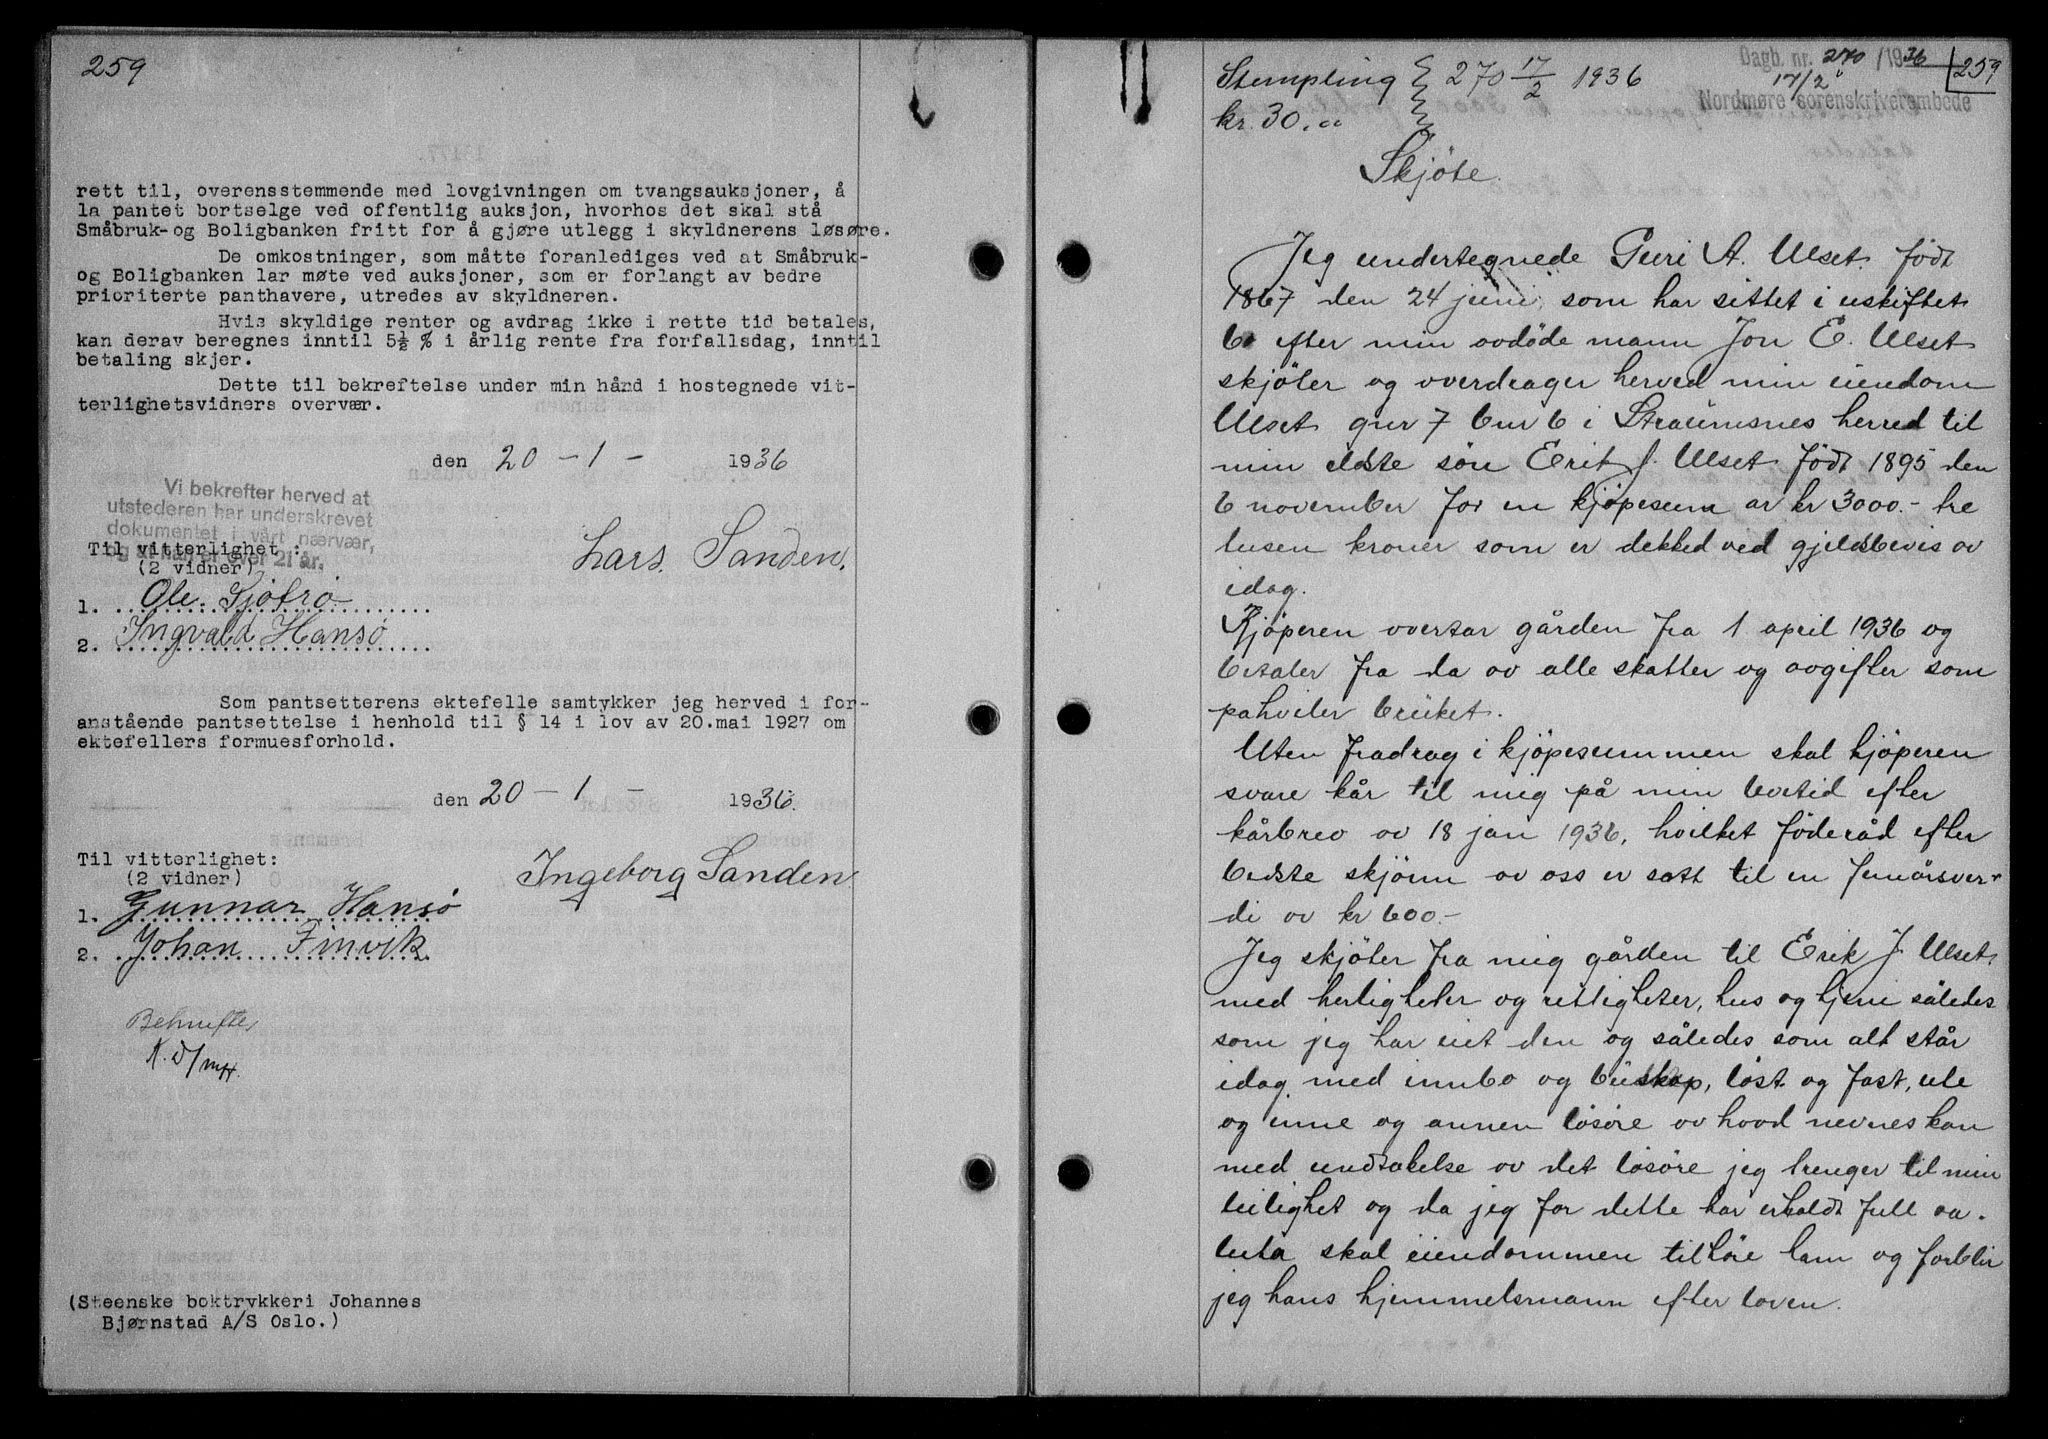 259
rett til, overensstemmende med lovgivningen om tvangsauksjoner, å
la pantet bortselge ved offentlig auksjon, hvorhos det skal stå
Småbruk-og Boligbanken fritt for å gjøre utlegg i skyldnerens løsøre.
De omkostninger, som måtte foranlediges ved at Småbruk-
og Boligbanken lar møte ved auksjoner, som er forlangt av bedre
prioriterte panthavere, utredes av skyldneren.
Hvis skyldige renter og avdrag ikke i rette tid betales,
kan derav beregnes inntil 5½ % i årlig rente fra forfallsdag, inntil
betaling skjer.
Dette til bekreftelse under min hånd i hostegnede vit-
terlighetsvidners overvær.
den 20 - 1 - 1936
Vi bekrefter herved at
utstederen har underskrevet
dokumentet i vårt nærvær,
og at han er over 21 år.
Lars. Sanden.
Til vitterlighet:
(2 vidner)
1. Ole
2. Ingvald Hansø
Som pantsetterens ektefelle samtykker jeg herved i for-
anstående pantsettelse i henhold til § 14 i lov av 20.mai 1927 om
ektefellers formuesforhold.
den 20 - 1 - 1936.
Til vitterlighet:
(2 vidner)
Ingeborg Sanden
1. Gunnar Hansø
2. Johan Finvik
(Steenske boktrykkeri Johannes
Bjørnstad A/S Oslo.)
Dagb. nr. 270 / 1936
17/2
Nordmøre sorenskriverembede
259
Stempling 270 17/2 1936
kr. 30.
Skjöte.
Jeg undertegnede Guri A. Ulset født
1867 den 24 juni, som har sittet i uskiftet
bo efter min avdöde mann Jon E. Ulset
skjöter og overdrager herved min eiendom
Ulset gnr 7 bnr 6 i Straumsnes herred til
min eldste sön Erik J. Ulset født 1895 den
6 november for en kjöpesum av kr 3000.- tre
tusen kroner som er dekked ved gjeldsbevis av
idag.
Kjöperen overtar gården fra 1 april 1936 og
betaler fra da av alle skatter og avgifter som
pahviler bruket.
Uten fradrag i kjöpesummen skal kjöperen
svare kår til mig på min levetid efter
kårbrev av 18 jan 1936, hvilket föderåd efter
bedste skjönn av oss er satt til en femårsver-
di av kr 600.-
Jeg skjöter fra mig gården til Erik J. Ulset
med herligheter og rettigheter, hus og hjem således
som jeg har eiet den og således som alt står
idag med innbo og buskap, löst og fast, ute
og inne og annen lösöre av hvad nevnes kan
med undtakelse av det lösöre jeg trenger til min
leilighet og da jeg for dette har erholdt full va-
luta skal eiendommen tilhöre ham og forblir
jeg hans hjemmelsmann efter loven.